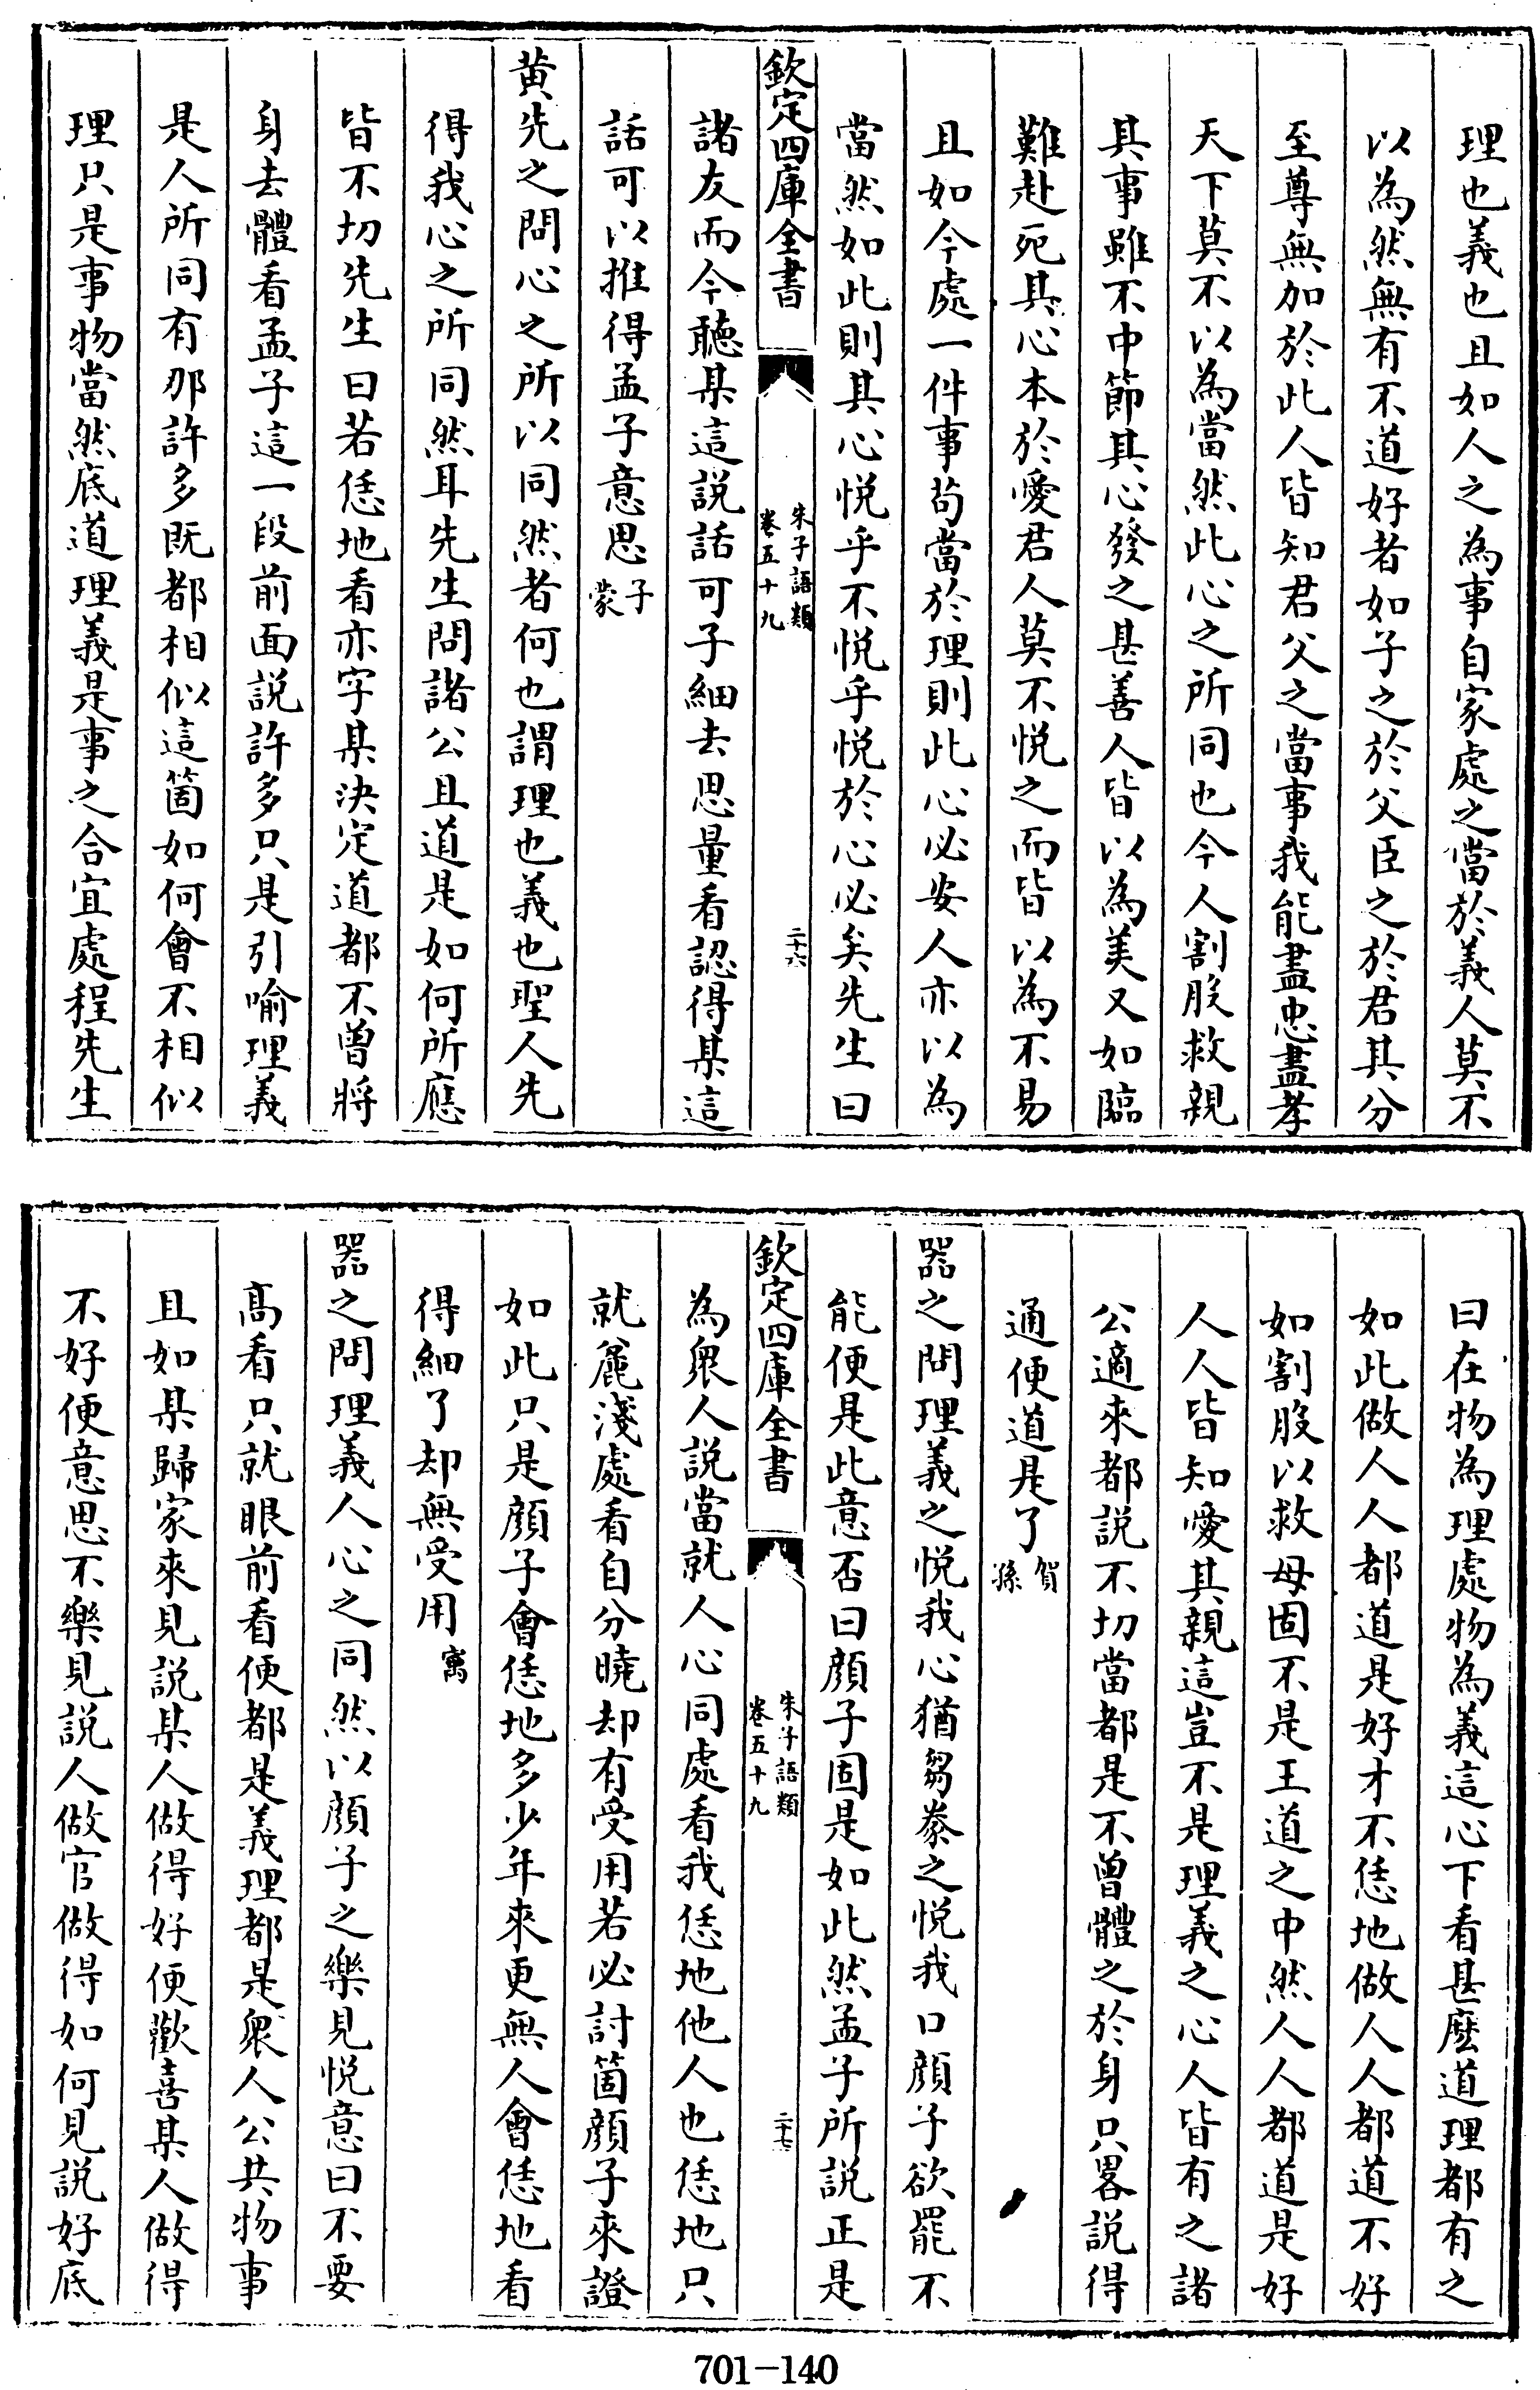 理也義也且如人之為事自家處之當於義人莫不
以為然無有不道好者如子之於父臣之於君其分
至尊無加於此人皆知君父之當事我能盡忠盡孝
天下莫不以為當然此心之所同也今人割股救親
其事雖不中節其心發之甚善人皆以為美又如臨
難赴死其心本於愛君人莫不悦之而皆以為不易
且如今處一件事苟當於理則此心必安人亦以為
當然如此則其心悦乎不悦乎悦於心必矣先生曰
欽定四庫全書
朱子語類
卷五十九
二十六
諸友而今聽某這説話可子細去思量看認得某這
話可以推得孟子意思子蒙
黄先之問心之所以同然者何也謂理也義也聖人先
得我心之所同然耳先生問諸公且道是如何所應
皆不切先生曰若恁地看亦字某決定道都不曾將
身去體看孟子這一段前面説許多只是引喻理義
是人所同有那許多既都相似這箇如何會不相似
理只是事物當然底道理義是事之合宜處程先生
曰在物為理處物為義這心下看甚麽道理都有之
如此做人人都道是好才不恁地做人人都道不好
如割股以救母固不是王道之中然人人都道是好
人人皆知愛其親這豈不是理義之心人皆有之諸
公適來都説不切當都是不曾體之於身只畧説得
通便道是了賀孫
器之問理義之悦我心猶芻豢之悦我口顔子欲罷不
能便是此意否曰顔子固是如此然孟子所説正是
欽定四庫全書
朱子語類
卷五十九
二十七
為衆人説當就人心同處看我恁地他人也恁地只
就麄淺處看自分曉却有受用若必討箇顔子來證
如此只是顔子會恁地多少年來更無人會恁地看
得細了却無受用㝢
器之問理義人心之同然以顔子之樂見悦意曰不要
髙看只就眼前看便都是義理都是衆人公共物事
且如某歸家來見説某人做得好便歡喜某人做得
不好便意思不樂見説人做官做得如何見説好底
701-140